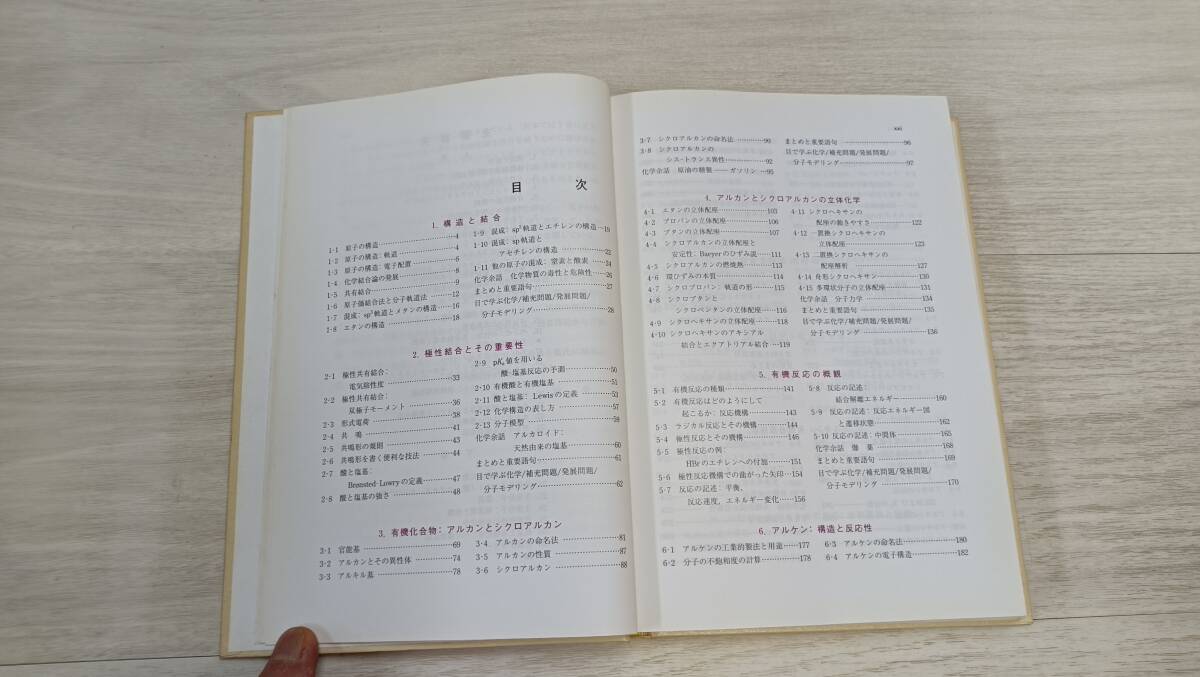 目 次
1. 構造と結合
1・1 原子の構造 4
1・2 原子の構造: 軌道 4
1・3 原子の構造: 電子配置 6
1・4 化学結合論の発展 8
1・5 共有結合 9
1・6 原子価結合法と分子軌道法 12
1・7 混成: sp³軌道とメタンの構造 16
1・8 エタンの構造 18
1・9 混成: sp²軌道とエチレンの構造 19
1・10 混成: sp軌道と
アセチレンの構造 22
1・11 他の原子の混成: 窒素と酸素 24
化学余話 化学物質の毒性と危険性 26
まとめと重要語句 27
目で学ぶ化学/補充問題/発展問題/
分子モデリング 28
2. 極性結合とその重要性
2・1 極性共有結合:
電気陰性度 33
2・2 極性共有結合:
双極子モーメント 36
2・3 形式電荷 38
2・4 共 鳴 41
2・5 共鳴形の規則 43
2・6 共鳴形を書く便利な技法 44
2・7 酸と塩基:
Brønsted-Lowryの定義 47
2・8 酸と塩基の強さ 48
2・9 pKa値を用いる
酸-塩基反応の予測 50
2・10 有機酸と有機塩基 51
2・11 酸と塩基: Lewisの定義 53
2・12 化学構造の表し方 57
2・13 分子模型 59
化学余話 アルカロイド:
天然由来の塩基 60
まとめと重要語句 61
目で学ぶ化学/補充問題/発展問題/
分子モデリング 62
3. 有機化合物: アルカンとシクロアルカン
3・1 官能基 69
3・2 アルカンとその異性体 74
3・3 アルキル基 78
3・4 アルカンの命名法 81
3・5 アルカンの性質 87
3・6 シクロアルカン 88
xxi
3・7 シクロアルカンの命名法 90
3・8 シクロアルカンの
シス-トランス異性 92
化学余話 原油の精製——ガソリン 95
まとめと重要語句 96
目で学ぶ化学/補充問題/発展問題/
分子モデリング 97
4. アルカンとシクロアルカンの立体化学
4・1 エタンの立体配座 103
4・2 プロパンの立体配座 106
4・3 ブタンの立体配座 107
4・4 シクロアルカンの立体配座と
安定性: Baeyerのひずみ説 111
4・5 シクロアルカンの燃焼熱 113
4・6 環ひずみの本質 114
4・7 シクロプロパン: 軌道の形 115
4・8 シクロブタンと
シクロペンタンの立体配座 116
4・9 シクロヘキサンの立体配座 118
4・10 シクロヘキサンのアキシアル
結合とエクアトリアル結合 119
4・11 シクロヘキサンの
配座の動きやすさ 122
4・12 一置換シクロヘキサンの
立体配座 123
4・13 二置換シクロヘキサンの
配座解析 127
4・14 舟形シクロヘキサン 130
4・15 多環状分子の立体配座 131
化学余話 分子力学 134
まとめと重要語句 135
目で学ぶ化学/補充問題/発展問題/
分子モデリング 136
5. 有機反応の概観
5・1 有機反応の種類 141
5・2 有機反応はどのようにして
起こるか: 反応機構 143
5・3 ラジカル反応とその機構 144
5・4 極性反応とその機構 146
5・5 極性反応の例:
HBrのエチレンへの付加 151
5・6 極性反応機構での曲がった矢印 154
5・7 反応の記述: 平衡,
反応速度, エネルギー変化 156
5・8 反応の記述:
結合解離エネルギー 160
5・9 反応の記述: 反応エネルギー図
と遷移状態 162
5・10 反応の記述: 中間体 165
化学余話 爆 薬 168
まとめと重要語句 169
目で学ぶ化学/補充問題/発展問題/
分子モデリング 170
6. アルケン: 構造と反応性
6・1 アルケンの工業的製法と用途 177
6・2 分子の不飽和度の計算 178
6・3 アルケンの命名法 180
6・4 アルケンの電子構造 182